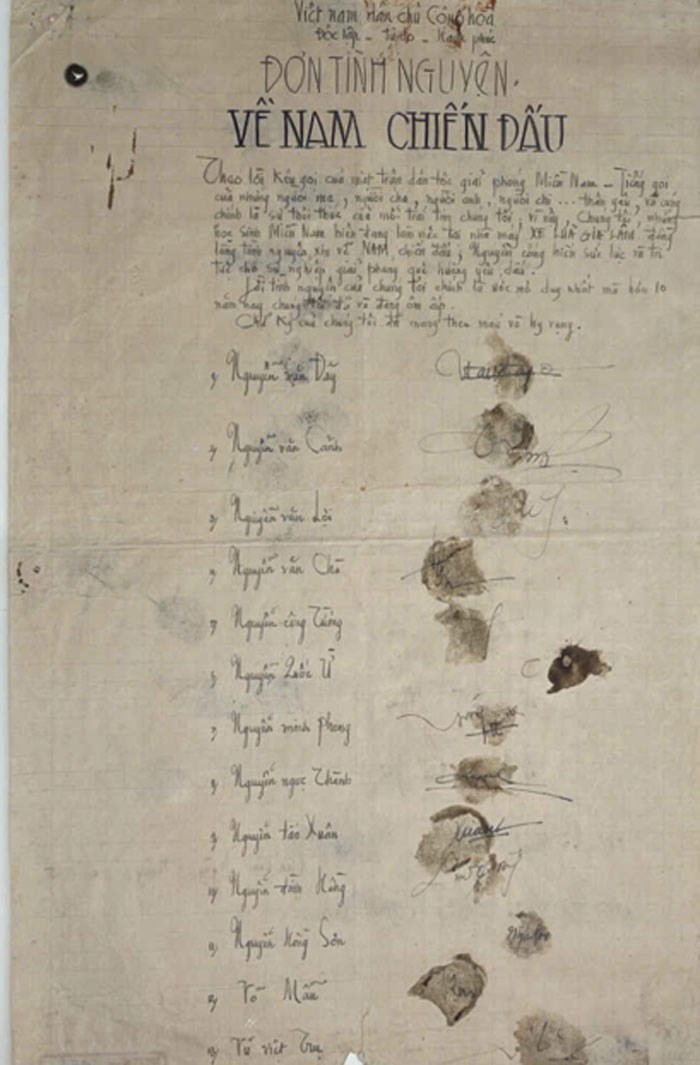 Việt nam Dân chủ Cộng hòa
Độc lập - Tự do - Hạnh phúc
ĐƠN TÌNH NGUYỆN.
VỀ NAM CHIẾN ĐẤU
Theo lời kêu gọi của mặt trận dân tộc giải phóng Miền Nam - Tiếng gọi
của những người mẹ, người cha, người anh, người chị ... thân yêu, và cũng
chính là sự thôi thúc của mỗi trái tim chúng tôi, vì vậy, Chúng tôi, những
học sinh Miền Nam hiện đang làm việc tại nhà máy XE LỬA GIA LÂM đồng
lòng tình nguyện xin về NAM chiến đấu; Nguyện cống hiến sức lực và trí
tuệ cho sự nghiệp giải phóng quê hương yêu dấu.
Lời tình nguyện của chúng tôi chính là ước mơ duy nhất mà hơn 10
năm nay chúng tôi đã và đang ôm ấp.
Chữ ký của chúng tôi đã mang theo máu và hy vọng.
1) Nguyễn văn Dãy
2) Nguyễn văn Cảnh
3) Nguyễn văn Lời
4) Nguyễn văn Chở
5) Nguyễn công Tưởng
Nguyễn Quốc Ử
7) Nguyễn minh Phong
8) Nguyễn ngọc Thành
9) Nguyễn tấo Xuân
Xuân
10) Nguyễn đình Hùng
11) Nguyễn Hồng Sơn
12) Võ Mẫn
13) Vũ viết Trụ